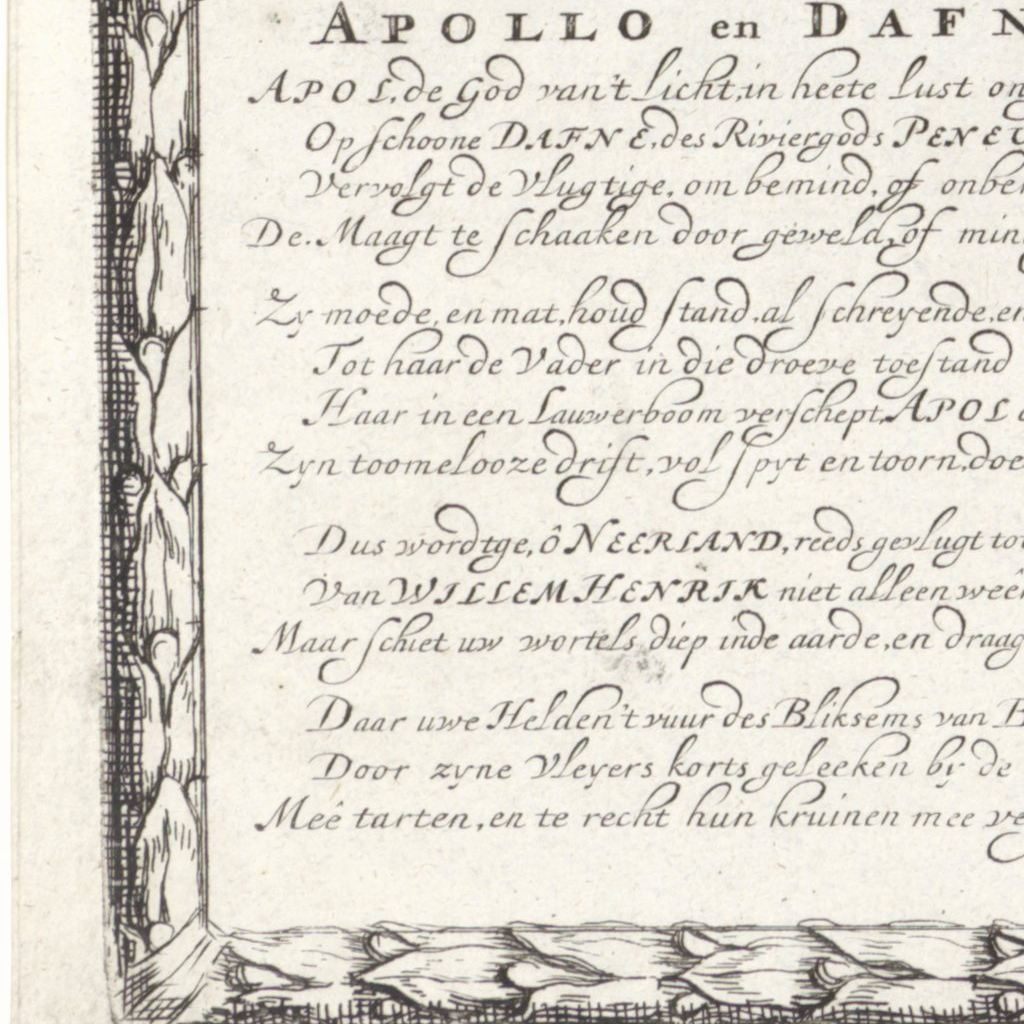 APOLLO en DAFN
APOL, de God van't Licht, in heete Lust on
Op schoone DAFNE, des Riviergods PENEU
Vervolgt de Vlugtige, om bemind, of onbe
De Maagt te schaaken door geweld, of min
Zy moede, en mat, houd stand, al schreyende, en
Tot haar de Vader in die droeve toestand
Haar in een Lauwerboom verschept, APOL
Zyn toomelooze drift, vol spyt en toorn, doe
Dus wordtge, ô NEERLAND, reeds gevlugt to
Van WILLEM HENRIK niet alleen weê
Maar schiet uw wortels diep inde aarde, en draag
Daar uwe Helden't vuur des Bliksems van
Door zyne Vleyers korts geleeken by de
Meê tarten, en te recht hun kruinen mee ve